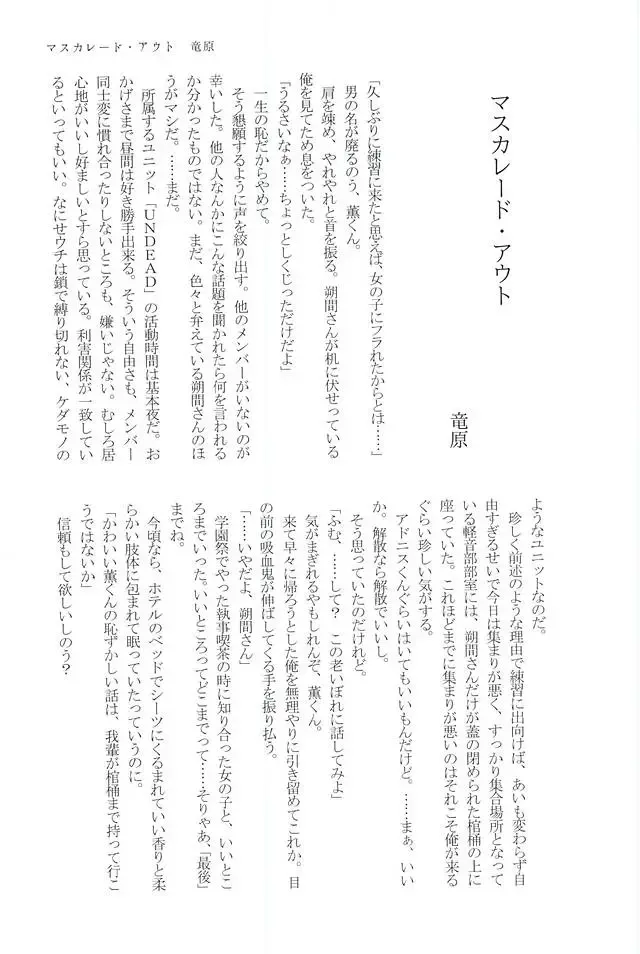 マスカレード・アウト　竜原
マスカレード・アウト
竜原
「久しぶりに練習に来たと思えば、女の子にフラれたからとは……」
男の名が廃るのう、薫くん。
肩を竦め、やれやれと音を振る。朔間さんが机に伏せっている
俺を見てため息をついた。
「うるさいなぁ……ちょっとしくじっただけだよ」
一生の恥だからやめて。
そう懇願するように声を絞り出す。他のメンバーがいないのが
幸いした。他の人なんかにこんな話題を聞かれたら何を言われる
か分かったものではない。まだ、色々と弁えている朔間さんのほ
うがマシだ。……まだ。
所属するユニット「ＵＮＤＥＡＤ」の活動時間は基本夜だ。お
かげさまで昼間は好き勝手出来る。そういう自由さも、メンバー
同士変に慣れ合ったりしないところも、嫌いじゃない。むしろ居
心地がいいし好ましいとすら思っている。利害関係が一致してい
るといってもいい。なにせウチは鎖で縛り切れない、ケダモノの
ようなユニットなのだ。
珍しく前述のような理由で練習に出向けば、あいも変わらず自
由すぎるせいで今日は集まりが悪く、すっかり集合場所となって
いる軽音部部室には、朔間さんだけが蓋の閉められた棺桶の上に
座っていた。これほどまでに集まりが悪いのはそれこそ俺が来る
ぐらい珍しい気がする。
アドニスくんぐらいはいてもいいもんだけど。……まぁ、いい
か。解散なら解散でいいし。
そう思っていたのだけれど。
「ふむ、……して？　この老いぼれに話してみよ」
気がまぎれるやもしれんぞ、薫くん。
来て早々に帰ろうとした俺を無理やりに引き留めてこれか。目
の前の吸血鬼が伸ばしてくる手を振り払う。
「……いやだよ、朔間さん」
学園祭でやった執事喫茶の時に知り合った女の子と、いいとこ
ろまでいった。いいところってどこまでって……そりゃあ、「最後」
までね。
今頃なら、ホテルのベッドでシーツにくるまれていい香りと柔
らかい肢体に包まれて眠っていたっていうのに。
「かわいい薫くんの恥ずかしい話は、我輩が棺桶まで持って行こ
うではないか」
信頼もして欲しいしのう？